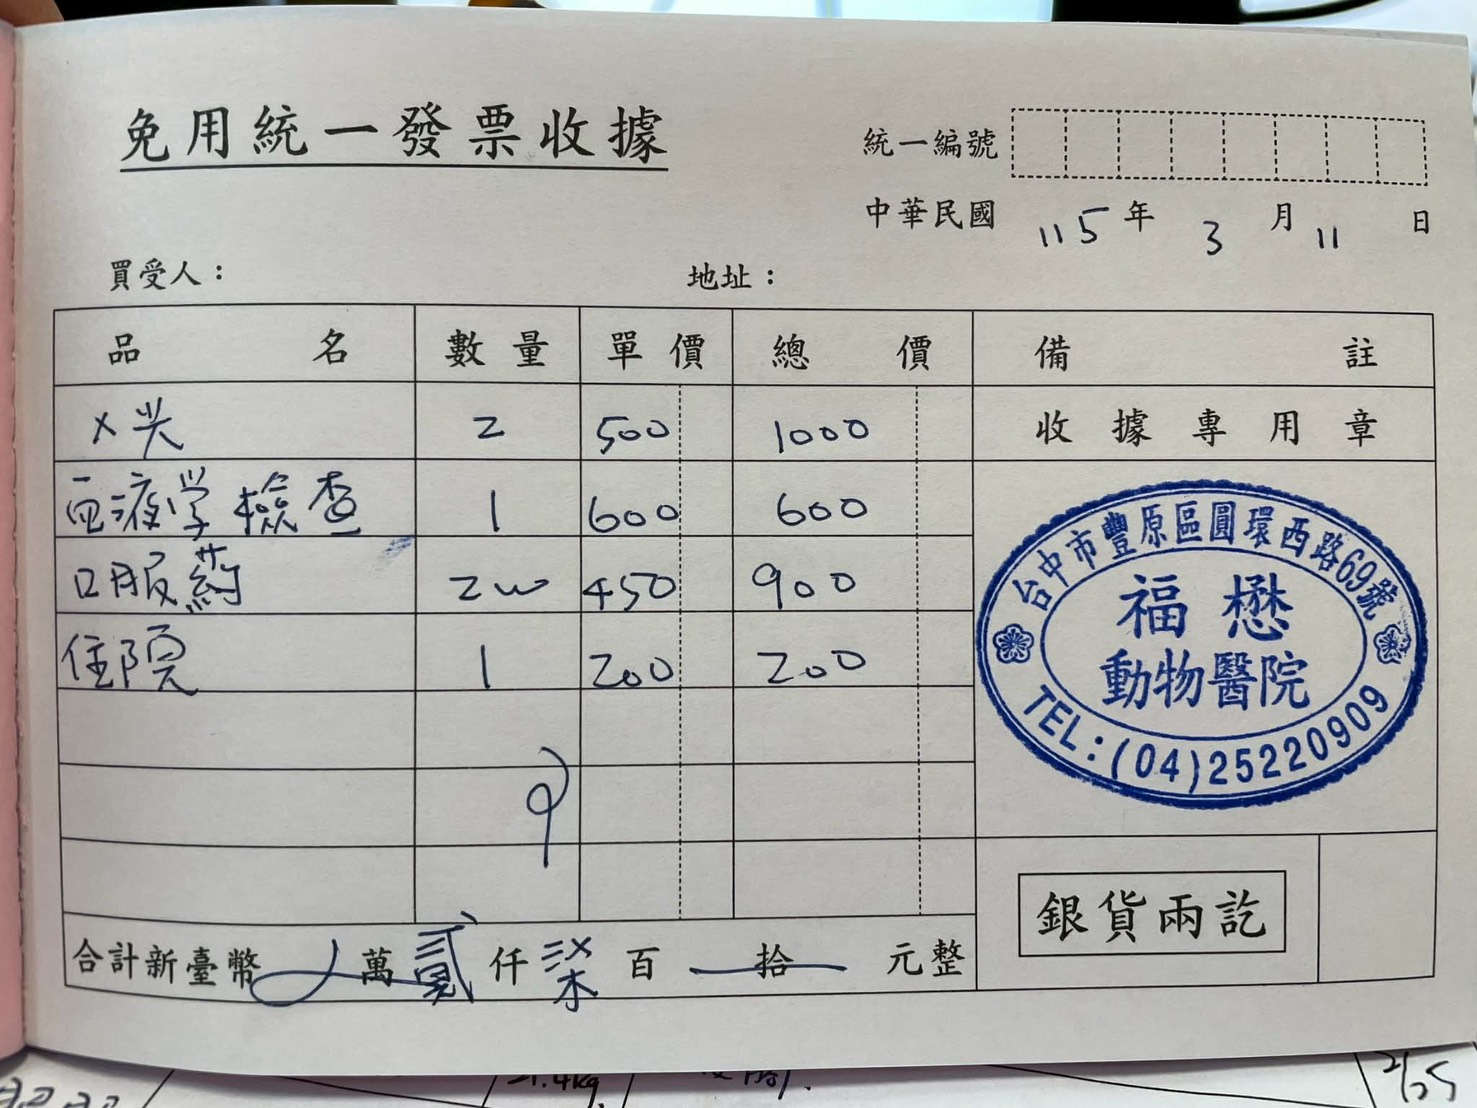 免用統一發票收據
統一編號
中華民國 115 年 3 月 11 日
買受人： 地址：
品名 數量 單價 總價 備註
X光 2 500 1000 收據專用章
血液学檢查 1 600 600
口服葯 2w 450 900
住院 1 200 200
台中市豐原區圓環西路69號
福懋
動物醫院
TEL:(04)25220909
合計新臺幣 萬貳仟柒百拾元整
銀貨兩訖
1.4kg
2/25